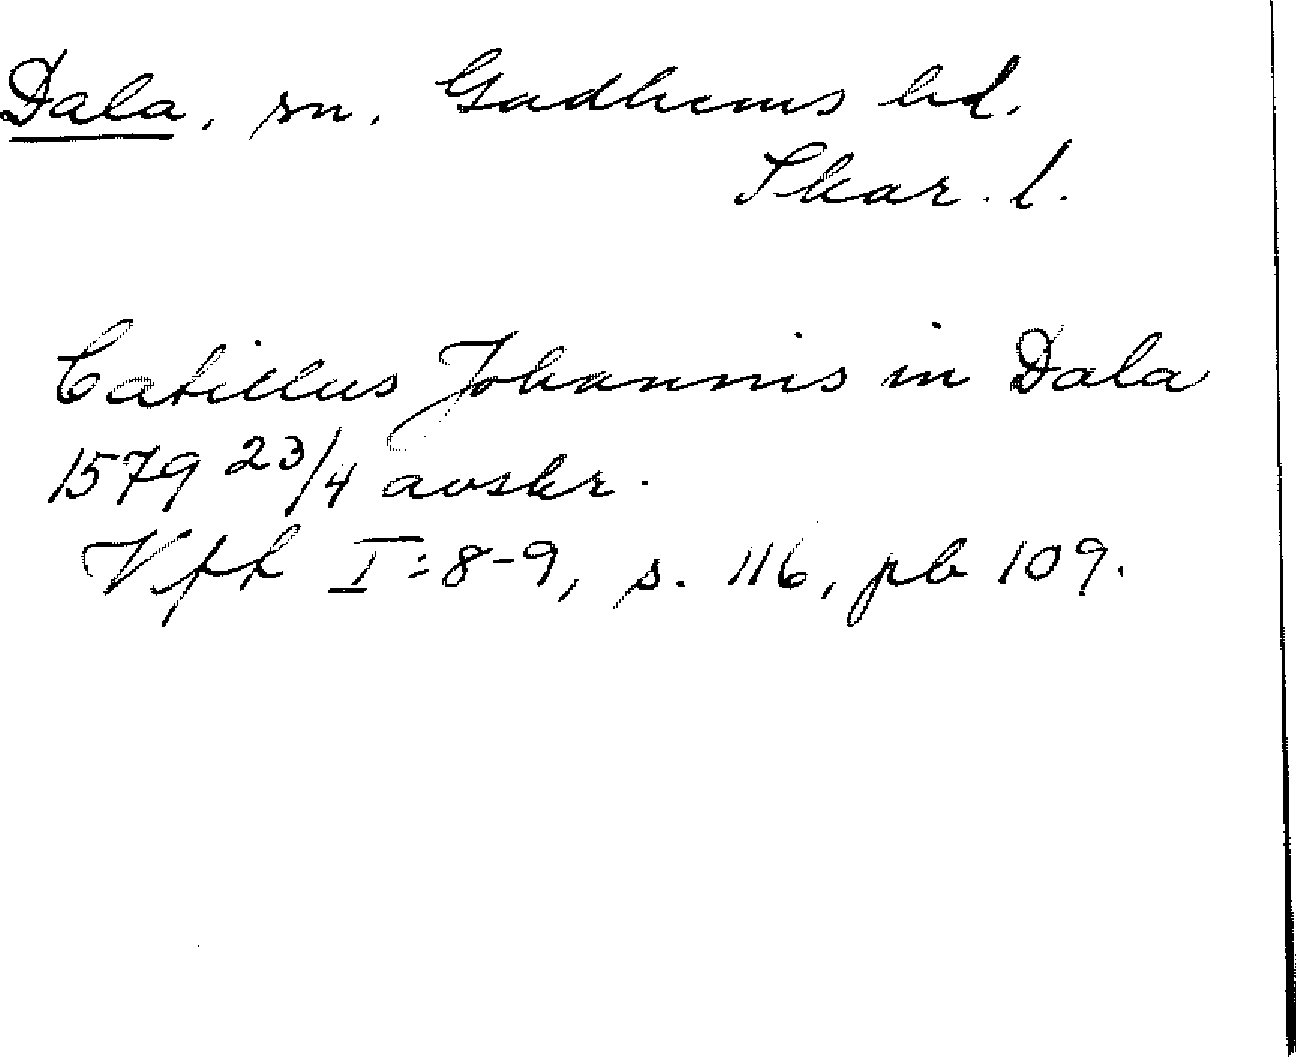 Dala, sn, Gudhems hd.
Skar. l.
Catillus Johannis in Dala
1579 23/4 avskr.
Vfh I:8-9, s. 116, pb 109.